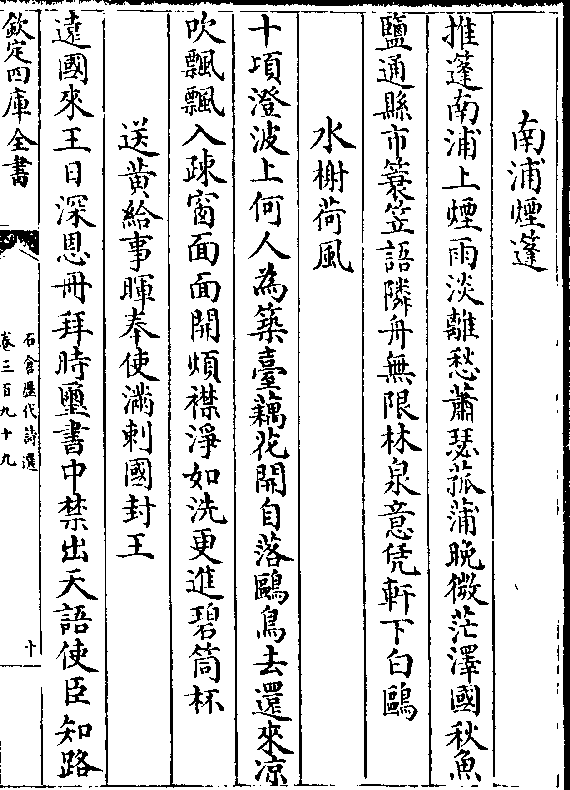 南浦煙篷
推蓬南浦上煙雨淡離愁蕭瑟菰蒲晚微茫澤國秋魚
鹽通縣市簑笠語隣舟無限林泉意凭軒下白鷗
水榭荷風
十項澄波上何人為築臺藕花開自落鷗鳥去還來凉
吹飄飄入疎窗面面開煩襟淨如洗更進碧筒杯
送黄給事暉奉使滿剌國封王
遠國來王日深恩冊拜時璽書中禁出天語使臣知路
欽定四庫全書
石倉歷代詩選
卷三百九十九
十